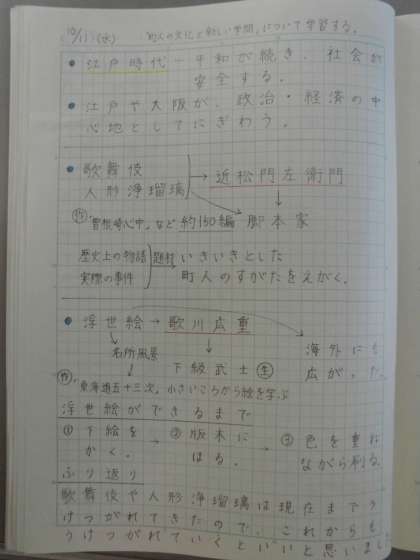 10/11(水) 町人の文化と新しい学問について学習する。
●江戸時代―平和が続き、社会が
安全する。
●江戸や大阪が、政治・経済の中
心地としてにぎわう。
●歌舞伎
人形浄瑠璃 → 近松門左衛門
作「曽根崎心中」など約150編 脚本家
歴史上の物語
実際の事件
題材
いきいきとした
町人のすがたをえがく。
●浮世絵→歌川広重
名所風景
海外にも
広がった
下級武士 生
作「東海道五十三次」 小さいころから絵を学ぶ
浮世絵ができるまで
① 下絵をかく。 → ② 版木にほる。 → ③ 色を重ねながら刷る。
ふり返り
歌舞伎や人形浄瑠璃は現在までう
けつがれてきたので、これからも
うけつがれていくといいと思いまし